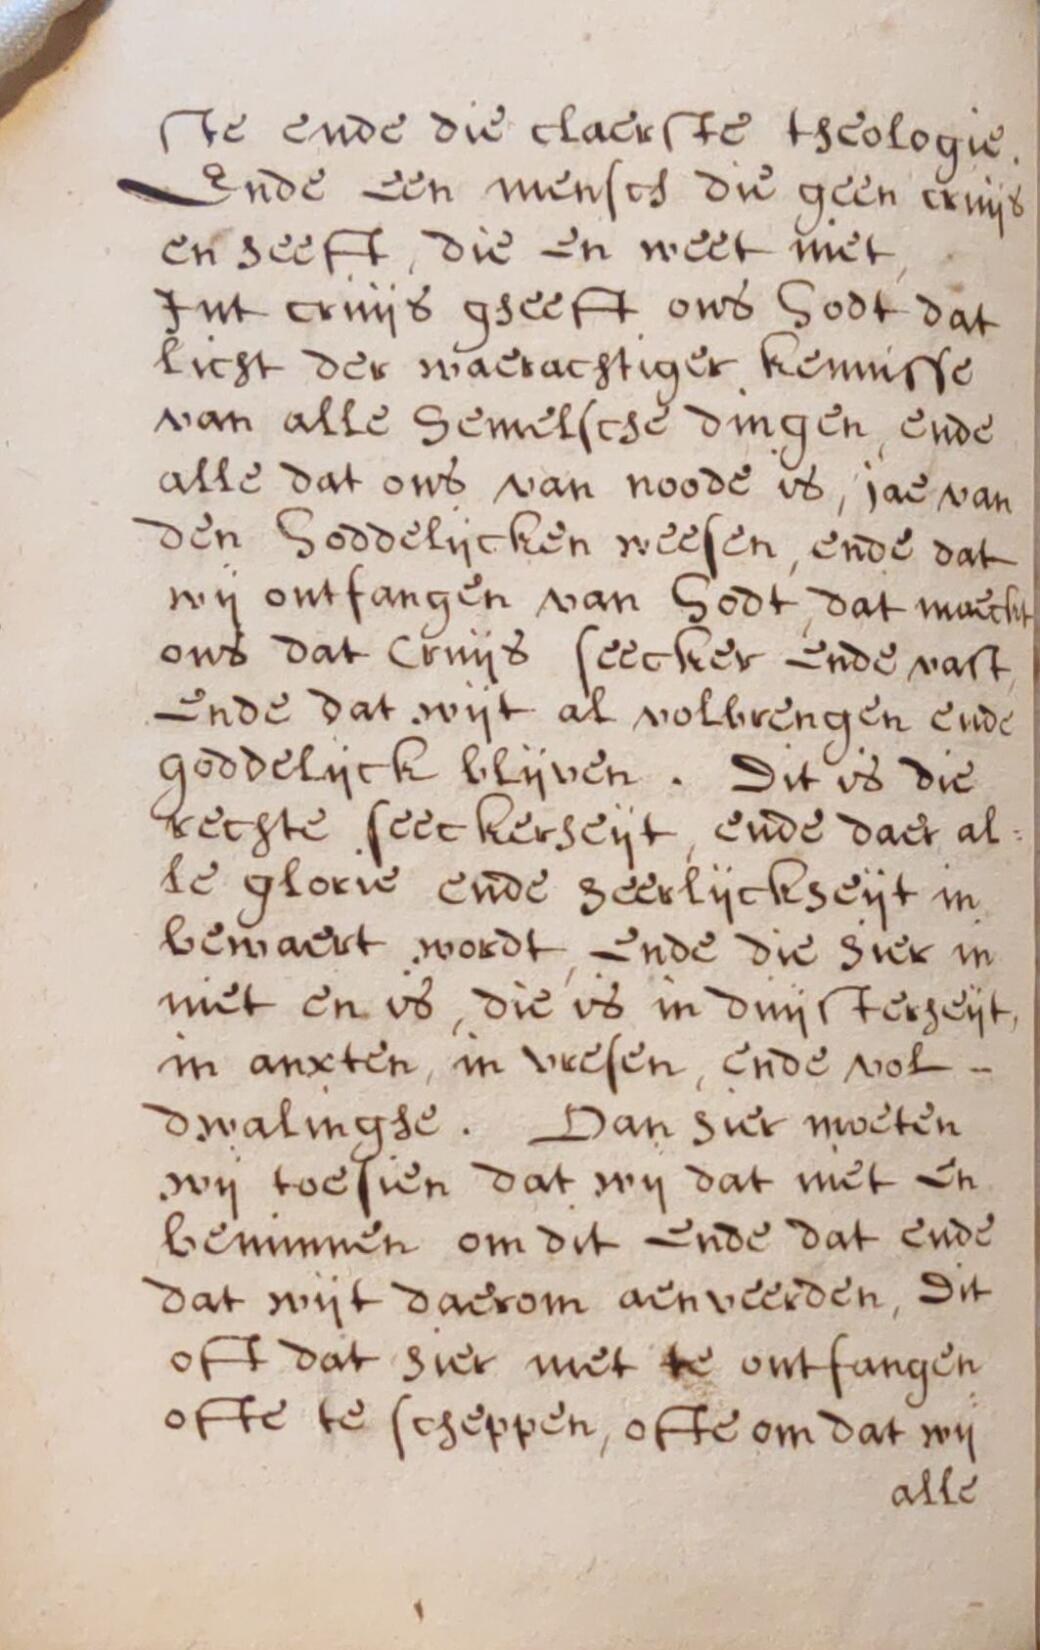 ste ende die claerste theologie.
Ende een mensch die geen cruijs
en heeft, die en weet niet,
Int cruijs gheeft ons Godt dat
licht der waerachtiger kennisse
van alle hemelsche dingen, ende
alle dat ons van noode is, jae van
den Goddelijcken weesen, ende dat
wij ontfangen van Godt, dat maeckt
ons dat Cruijs seecker ende vast,
Ende dat wijt al volbrengen ende
goddelijck blijven. Dit is die
rechte seeckerheijt, ende daer al=
le glorie ende heerlijckheijt in
bewaert wordt, Ende die hier in
niet en is, die is in duijsterheijt,
in anxten, in vresen, ende vol -
dwalinghe. Dan hier moeten
wij toesien dat wij dat niet en
beminnen om dit ende dat ende
dat wijt daerom aenveerden, Dit
oft dat hier met te ontfangen
ofte te scheppen, ofte om dat wij
alle